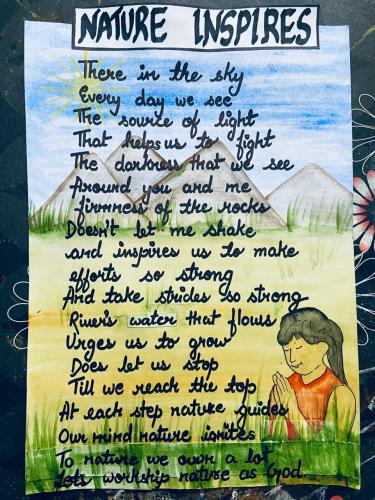 NATURE INSPIRES
There in the sky
Every day we see
The source of light
That helps us to fight
The darkness that we see
Around you and me
firmness of the rocks
Doesn't let me shake
and inspires us to make
efforts so strong
And take strides so strong
River's water that flows
Urges us to grow
Does let us stop
Till we reach the top
At each step nature guides
Our mind nature ignites
To nature we own a lot
Lets worship nature as God